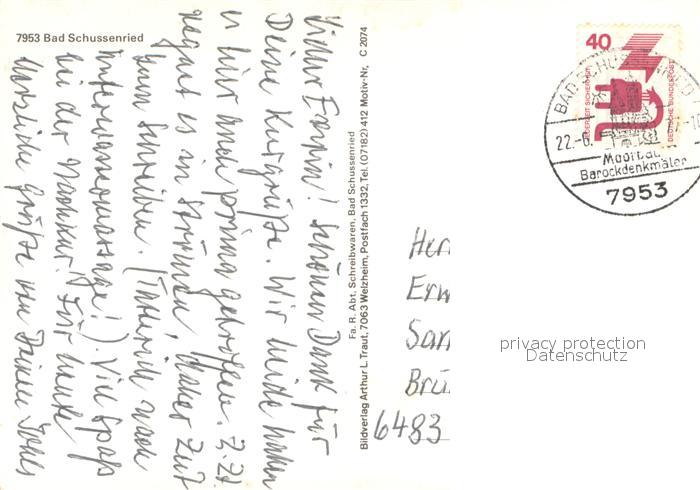 7953 Bad Schussenried
Lieber Erwin! Schönen Dank für
Deine Kurgrüße. Wir beide haben
es hier auch prima getroffen. Z. Zt.
regnet es in Strömen, daher Zeit
zum Schreiben. (Unterich nach
Unterwassermassage!). Viel Spaß
bei der Nachkur! Für heute
herzliche Grüße von Deinem
Fa. R. Abt, Schreibwaren, Bad Schussenried
Bildverlag Arthur L. Traut, 7063 Welzheim, Postfach 1332, Tel. (07182) 412 Motiv-Nr. C 2074
40
JEDERZEIT SICHERHEIT
DEUTSCHE BUNDESPOST
BAD SCHUSSENRIED
22.-6.
Moorbad
Barockdenkmäler
7953
Her
Erw
San
Brü
6483
privacy protection
Datenschutz